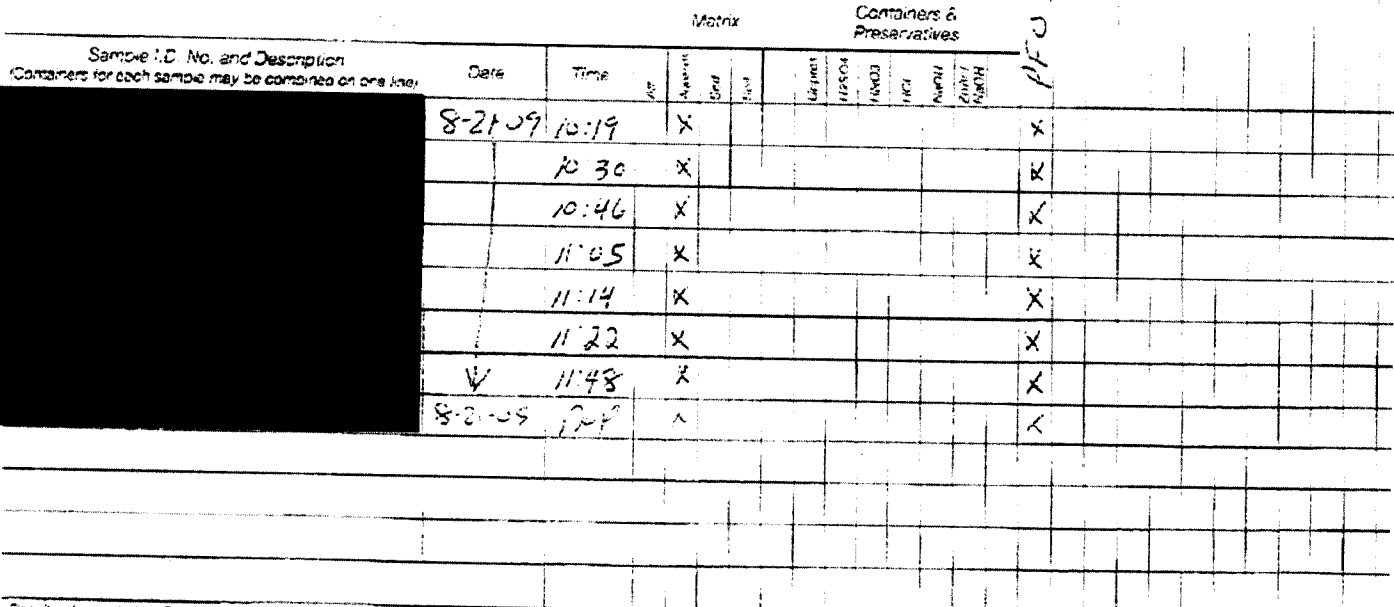 Matrix Containers &
Preservatives
Sample I.D. No. and Description
(Containers for each sample may be combined on one line)
Date Time Air Aqueous Sed Soil Unpres H2SO4 HNO3 HCl NaOH ZnAc/ NaOH
8-21-09 10:19 X X
10 30 X X
10:46 X X
11:05 X X
11:14 X X
11:22 X X
11:48 X X
8-21-09 X X